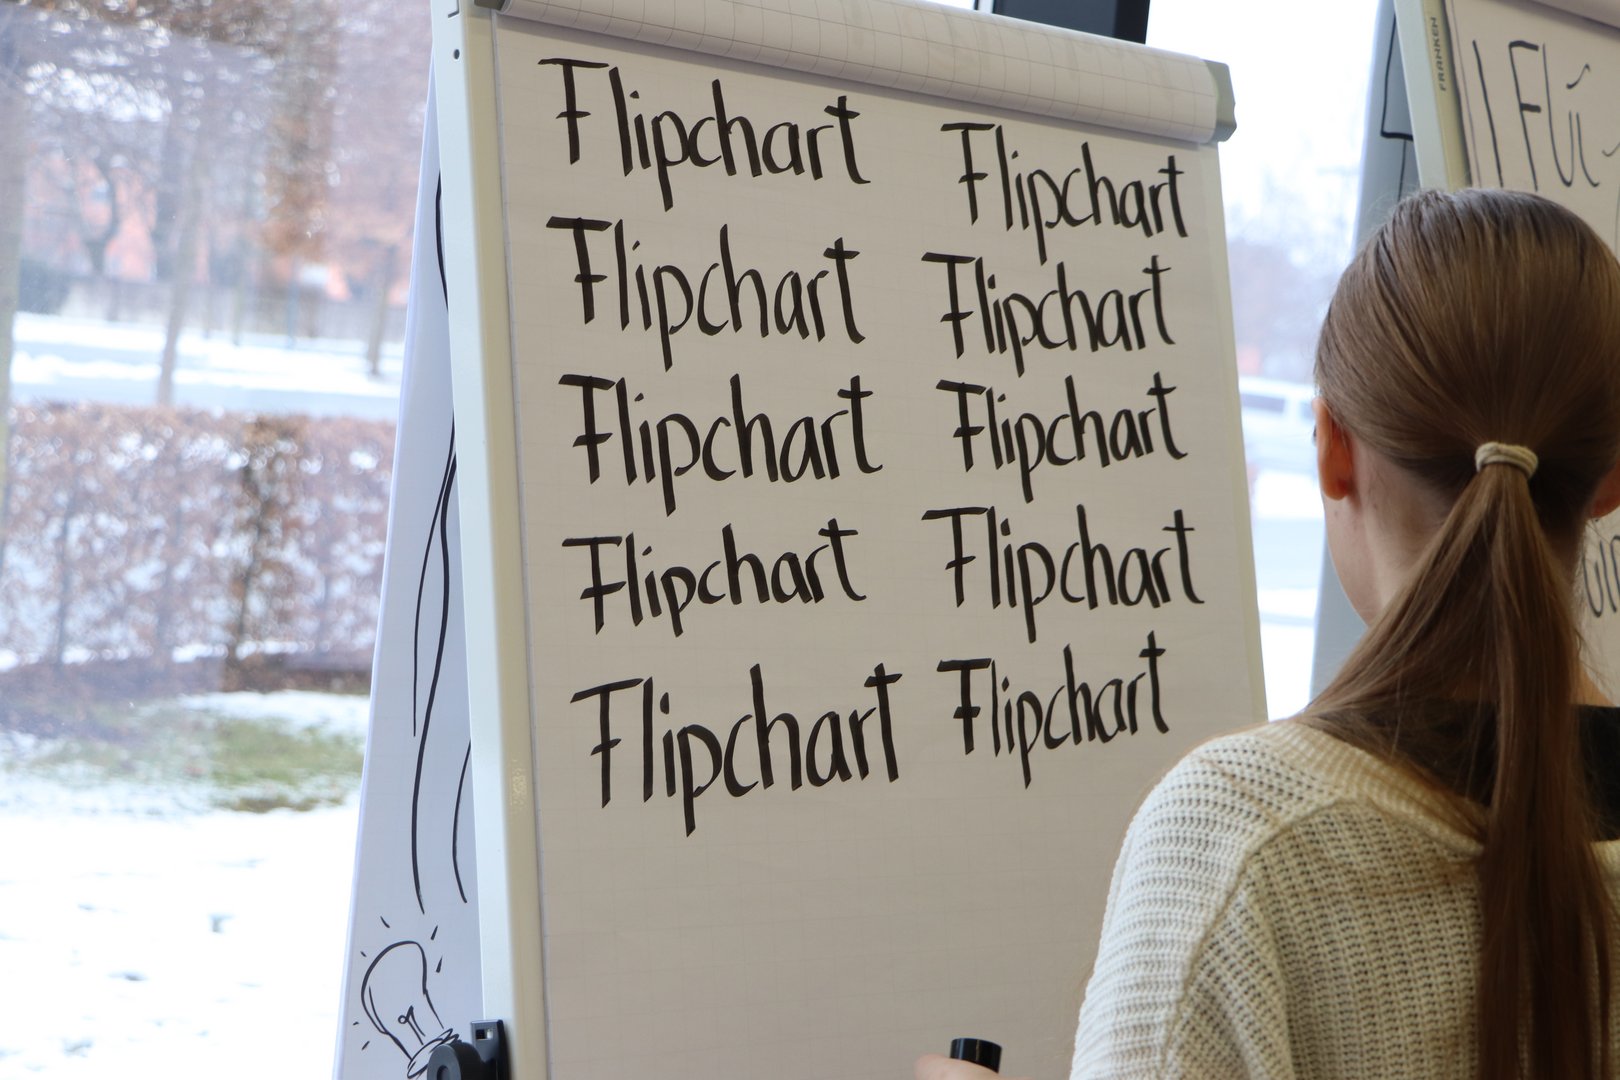 Flipchart
Flipchart
Flipchart
Flipchart
Flipchart
Flipchart
Flipchart
Flipchart
Flipchart
Flipchart
FRANKEN